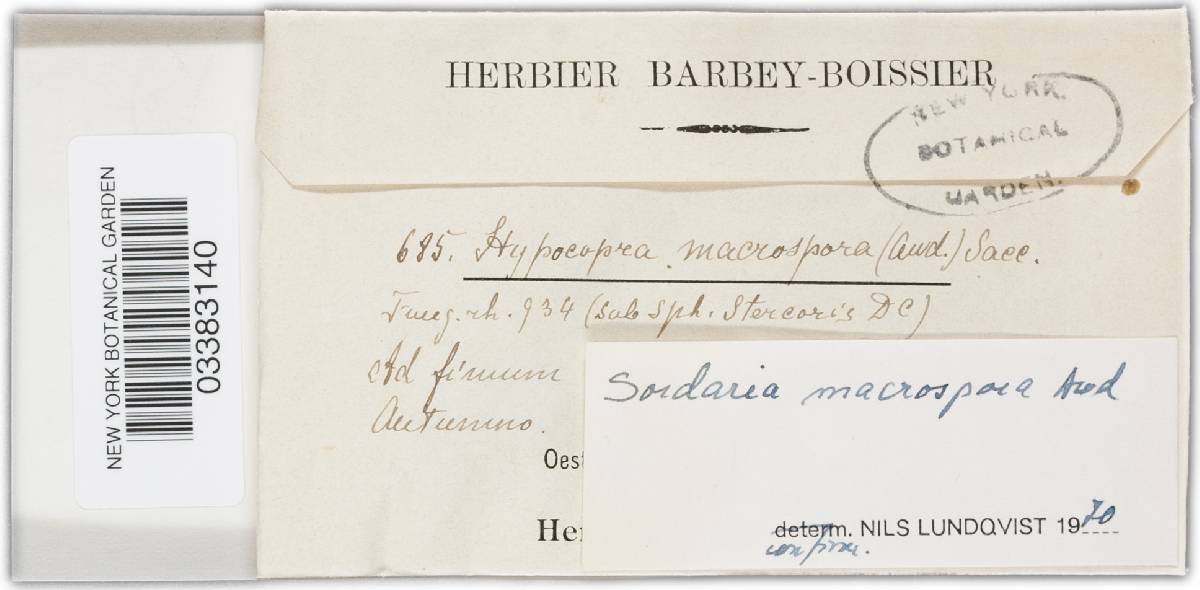 HERBIER BARBEY-BOISSIER
NEW YORK
BOTANICAL
GARDEN.
NEW YORK BOTANICAL GARDEN
03383140
685. Hypocopra macrospora (Awd.) Sacc.
Fung. rh. 934 (sub Sph. Stercoris DC)
Ad fimum
Autumno.
Oest
Her
Sordaria macrospora Awd
determ. NILS LUNDQVIST 1970
confirm.